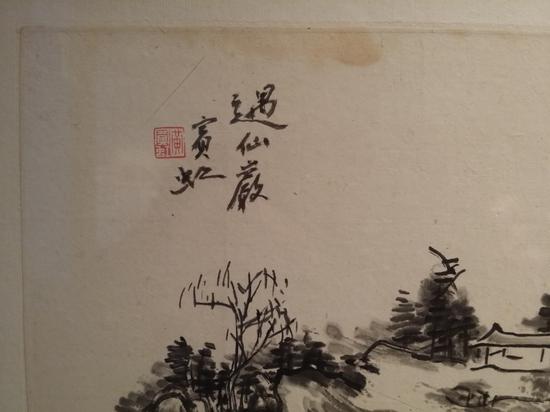 遇仙巖
賓虹